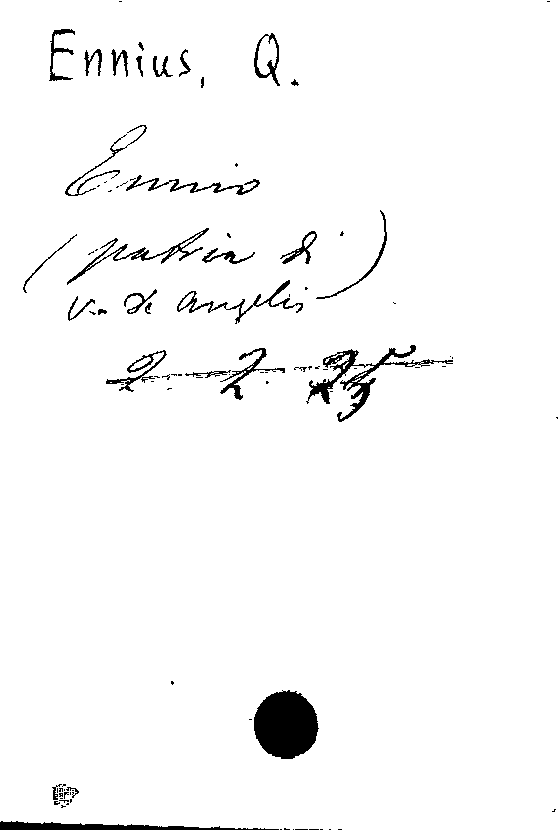 Ennius, Q.
Ennio
(patria di
v. de Angelis)
2. 2. 25